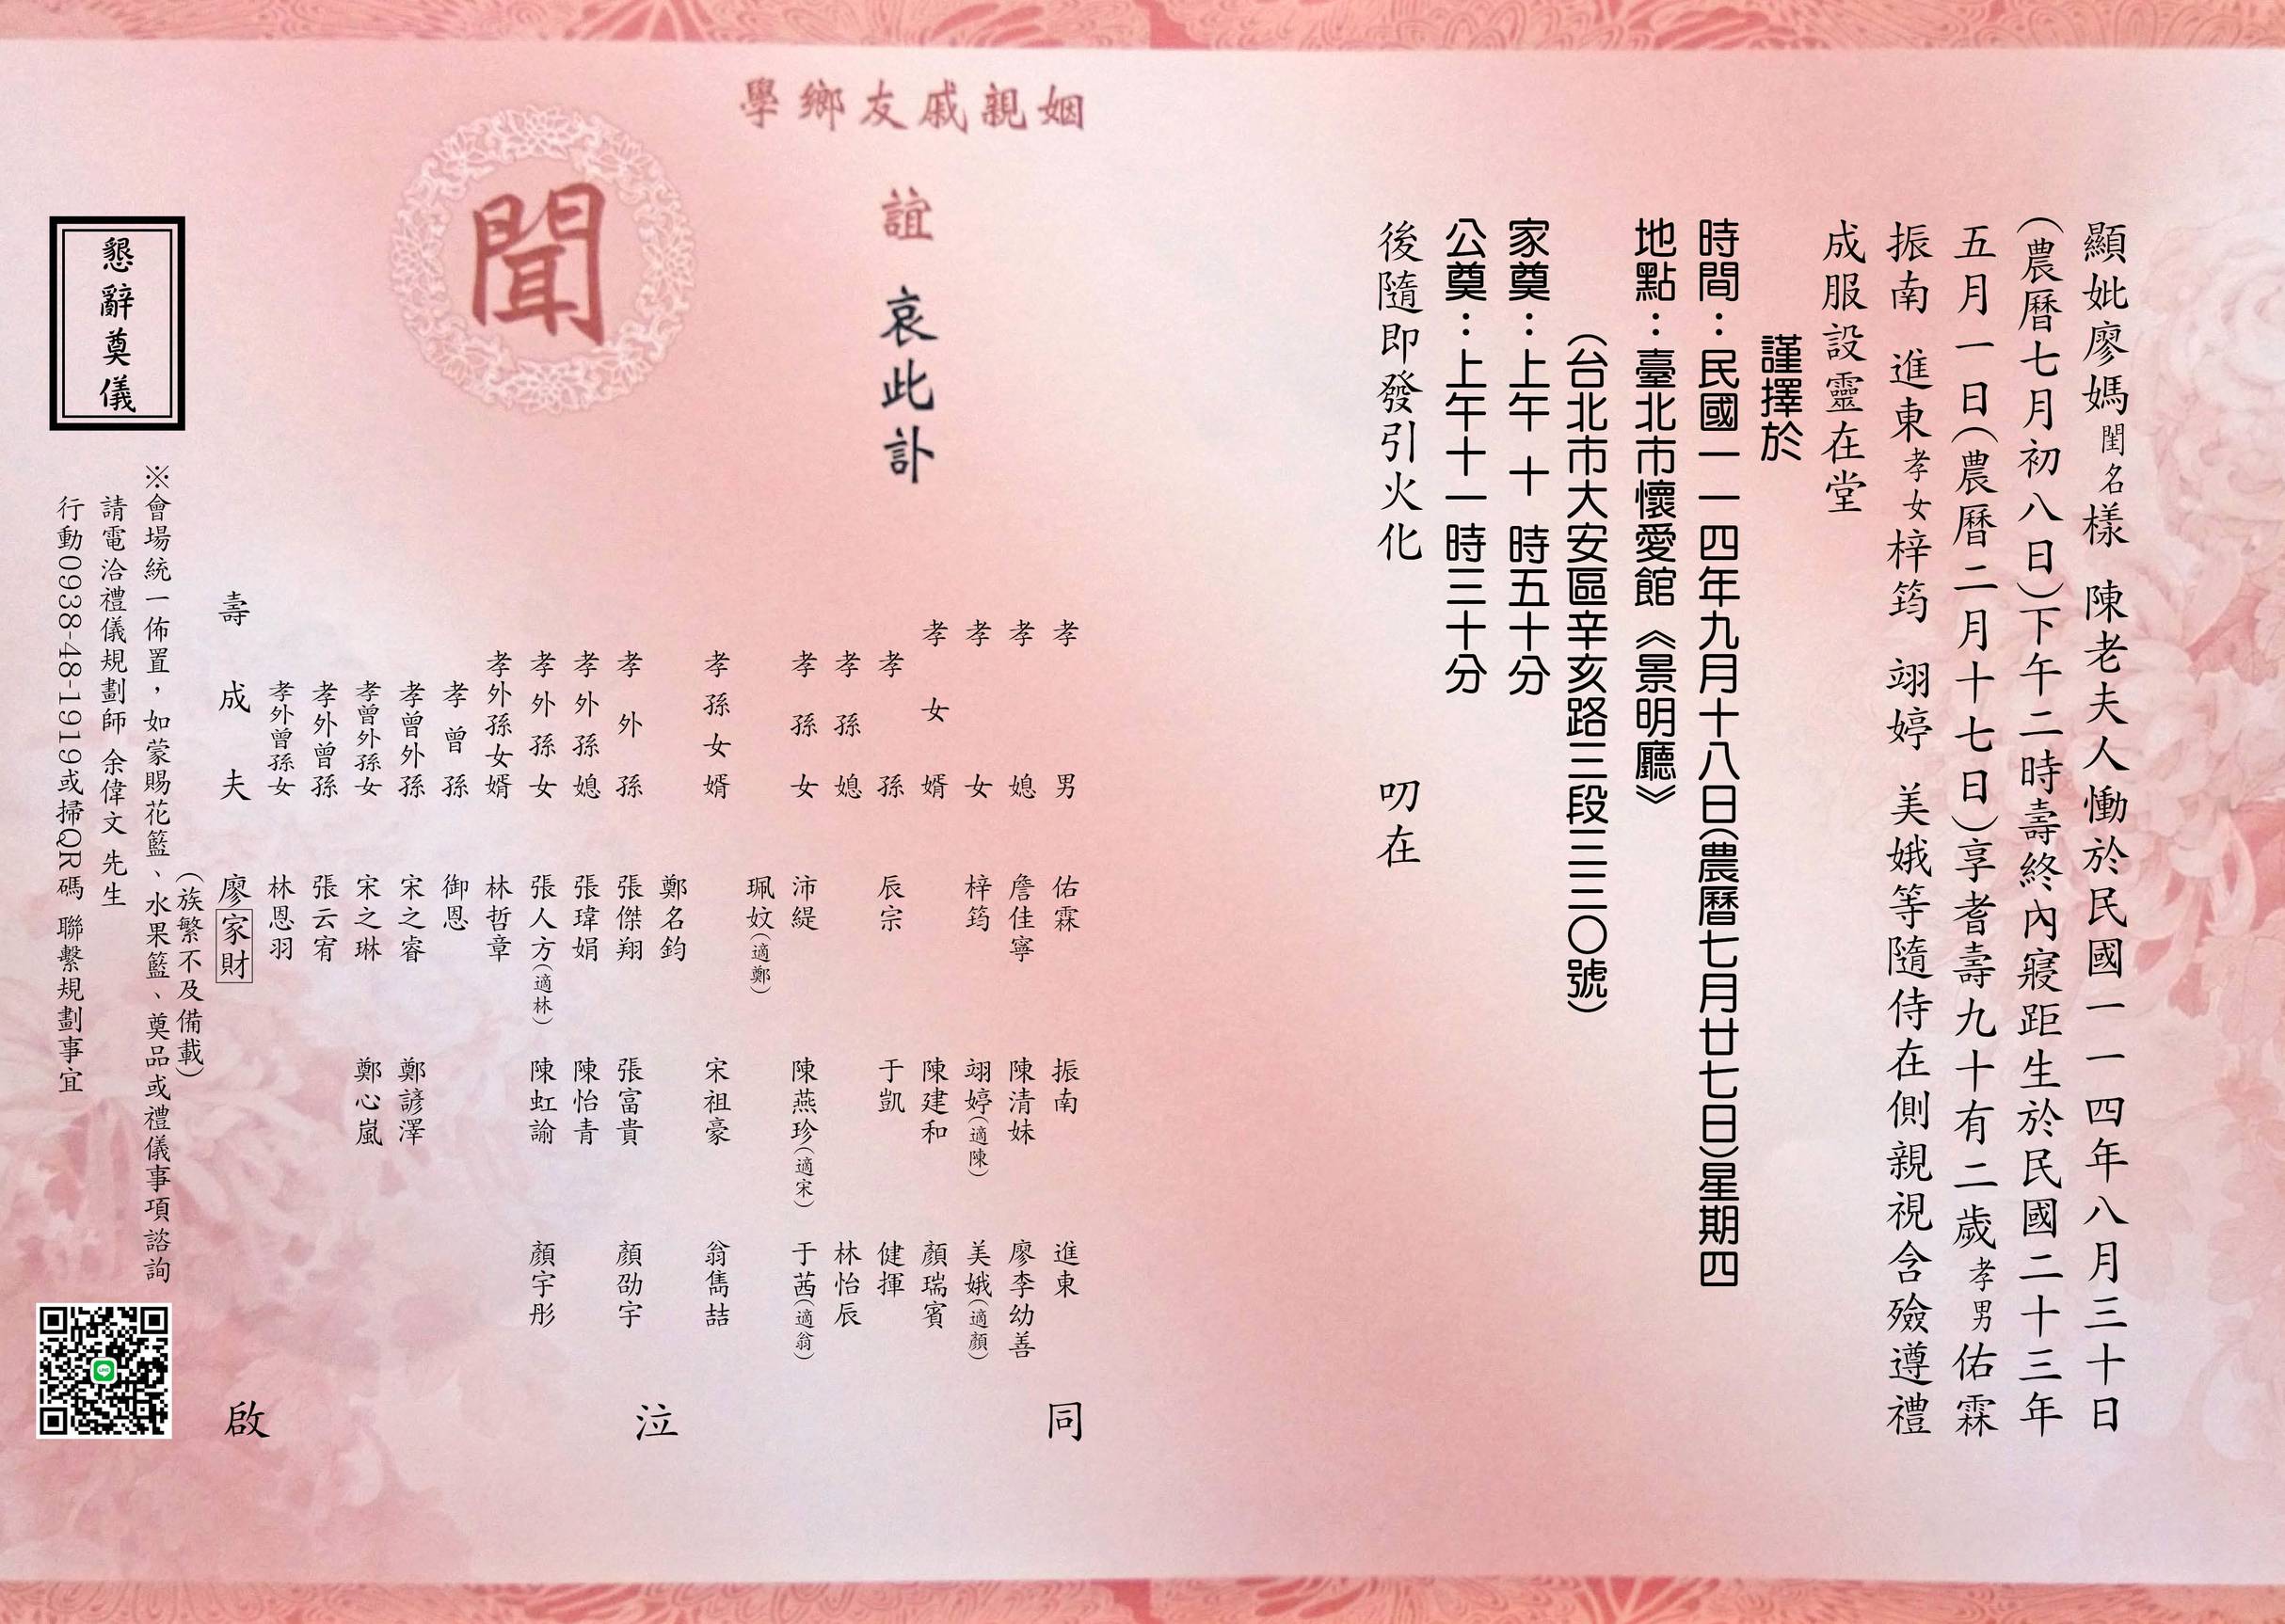 顯妣廖媽閨名樣 陳老夫人慟於民國一一四年八月三十日
(農曆七月初八日)下午二時壽終內寢距生於民國二十三年
五月一日(農曆二月十七日)享耆壽九十有二歲孝男佑霖
振南 進東孝女梓筠 翊婷 美娥等隨侍在側親視含殮遵禮
成服設靈在堂
謹擇於
時間：民國一一四年九月十八日(農曆七月廿七日)星期四
地點：臺北市懷愛館《景明廳》
(台北市大安區辛亥路三段三三〇號)
家奠：上午 十 時五十分
公奠：上午十一時三十分
後隨即發引火化 叨在
姻親戚友鄉學
誼 哀此訃
聞
孝男 佑霖 振南 進東
孝媳 詹佳寧 陳清妹 廖李幼善
孝女 梓筠 翊婷(適陳) 美娥(適顏)
孝女婿 陳建和 顏瑞賓
孝孫 辰宗 于凱 健揮
孝孫媳 林怡辰
孝孫女 沛緹 陳燕珍(適宋) 于茜(適翁)
珮妏(適鄭)
孝孫女婿 宋祖豪 翁雋喆
鄭名鈞
孝外孫 張傑翔 張富貴 顏劭宇
孝外孫媳 張瑋娟 陳怡青
孝外孫女 張人方(適林) 陳虹諭 顏宇彤
孝外孫女婿 林哲章
孝曾孫 御恩
孝曾外孫 宋之睿 鄭諺澤
孝曾外孫女 宋之琳 鄭心嵐
孝外曾孫 張云宥
孝外曾孫女 林恩羽
壽成夫 廖家財
(族繁不及備載)
同 泣 啟
懇辭奠儀
※會場統一佈置，如蒙賜花籃、水果籃、奠品或禮儀事項諮詢
請電洽禮儀規劃師 余偉文 先生
行動0938-48-1919或掃QR碼 聯繫規劃事宜